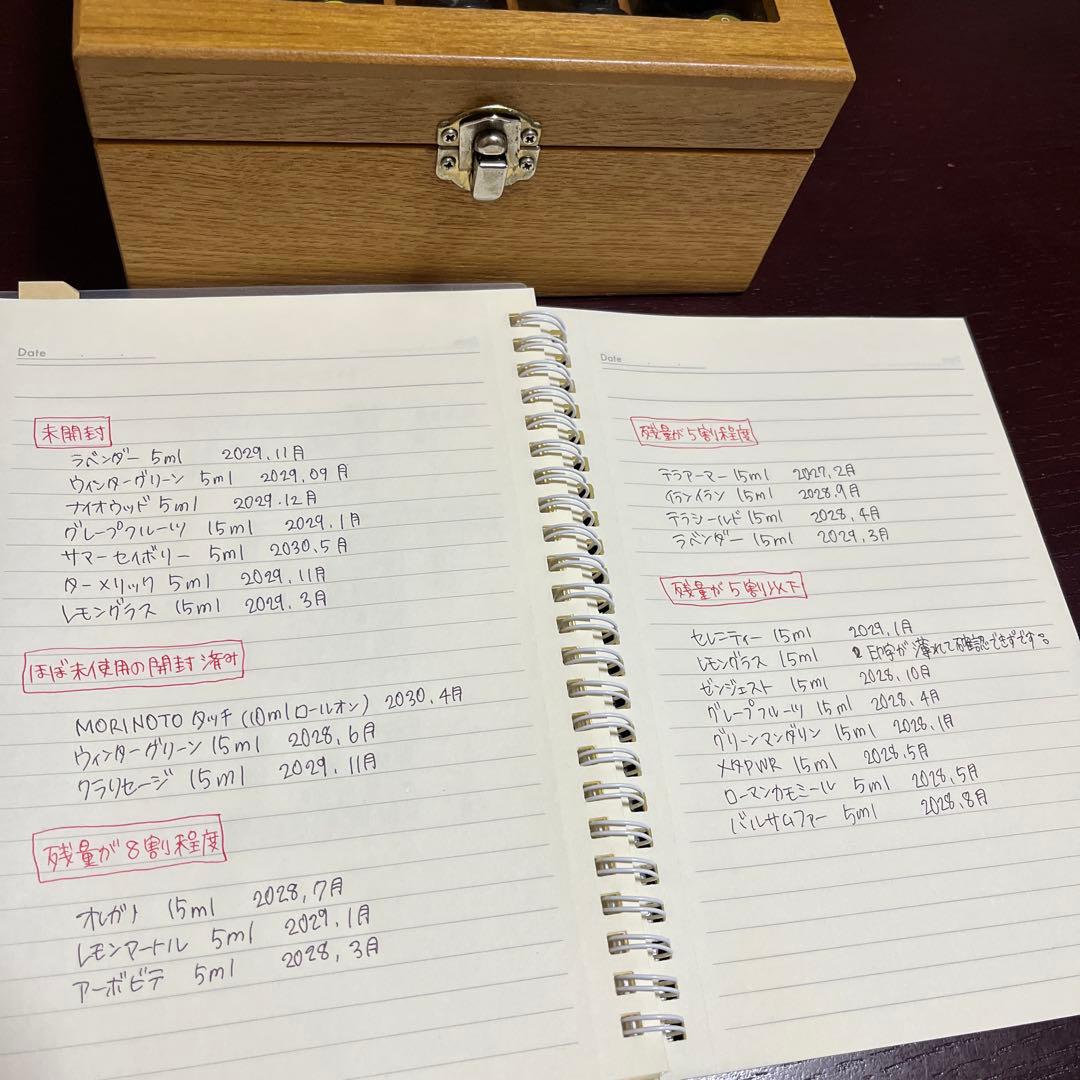 Date
未開封
ラベンダー 5ml 2029.11月
ウィンターグリーン 5ml 2029.09月
ナイオウッド 5ml 2029.12月
グレープフルーツ 15ml 2029.1月
サマーセイボリー 5ml 2030.5月
ターメリック 5ml 2029.11月
レモングラス 15ml 2029.3月
ほぼ未使用の開封済み
MORINOTO タッチ (10mlロールオン) 2030.4月
ウィンターグリーン 15ml 2028.6月
クラリセージ 15ml 2029.11月
残量が8割程度
オレガノ 15ml 2028.7月
レモンマートル 5ml 2029.1月
アーボビテ 5ml 2028.3月
Date
残量が5割程度
テラアーマー 15ml 2027.2月
イランイラン 15ml 2028.9月
テラシールド 15ml 2028.4月
ラベンダー 15ml 2029.3月
残量が5割以下
セレニティー 15ml 2029.1月
レモングラス 15ml 印字が薄れて確認できずです。
ゼンジェスト 15ml 2028.10月
グレープフルーツ 15ml 2028.4月
グリーンマンダリン 15ml 2028.1月
メタPWR 15ml 2028.5月
ローマンカモミール 5ml 2028.5月
バルサムファー 5ml 2028.8月